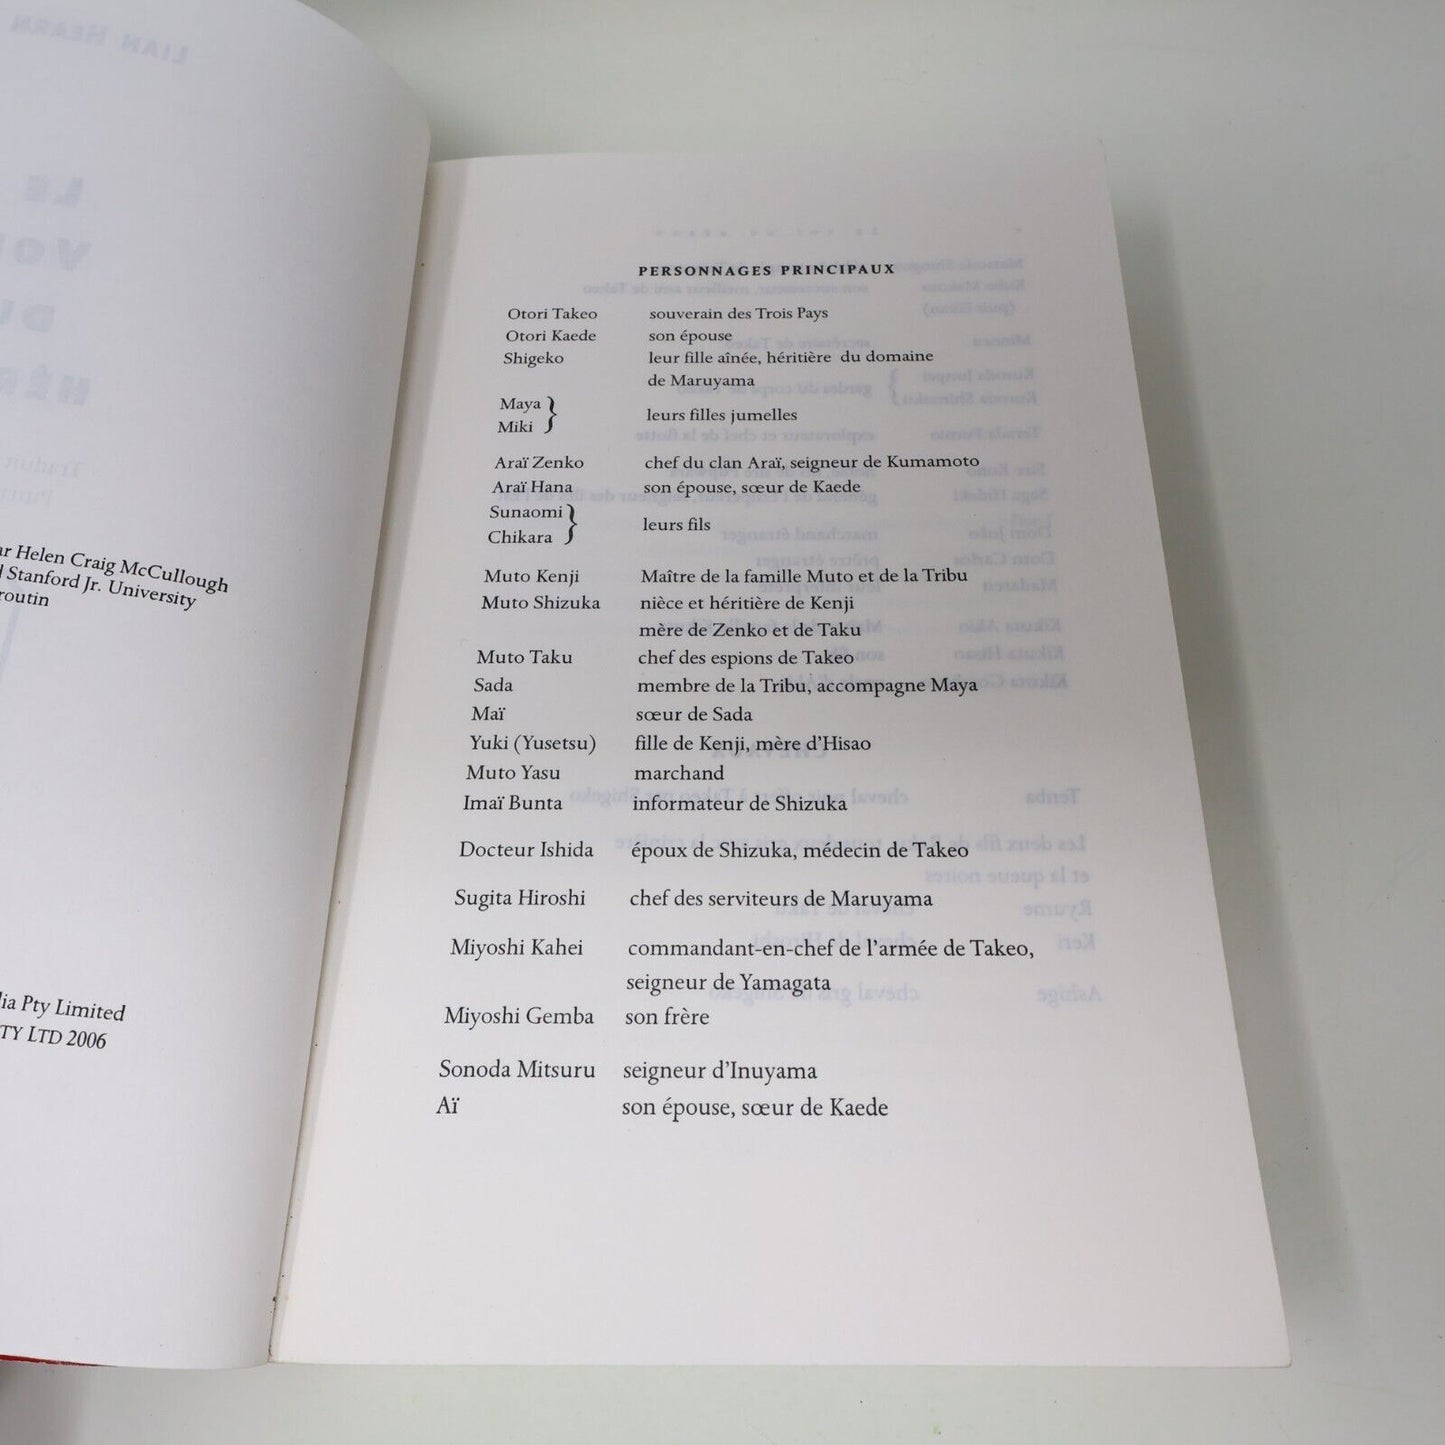 ar Helen Craig McCullough
Stanford Jr. University
routin
lia Pty Limited
TY LTD 2006
PERSONNAGES PRINCIPAUX
Otori Takeo souverain des Trois Pays
Otori Kaede son épouse
Shigeko leur fille aînée, héritière du domaine
de Maruyama
Maya
Miki
leurs filles jumelles
Araï Zenko chef du clan Araï, seigneur de Kumamoto
Araï Hana son épouse, sœur de Kaede
Sunaomi
Chikara
leurs fils
Muto Kenji Maître de la famille Muto et de la Tribu
Muto Shizuka nièce et héritière de Kenji
mère de Zenko et de Taku
Muto Taku chef des espions de Takeo
Sada membre de la Tribu, accompagne Maya
Maï sœur de Sada
Yuki (Yusetsu) fille de Kenji, mère d'Hisao
Muto Yasu marchand
Imaï Bunta informateur de Shizuka
Docteur Ishida époux de Shizuka, médecin de Takeo
Sugita Hiroshi chef des serviteurs de Maruyama
Miyoshi Kahei commandant-en-chef de l'armée de Takeo,
seigneur de Yamagata
Miyoshi Gemba son frère
Sonoda Mitsuru seigneur d'Inuyama
Aï son épouse, sœur de Kaede